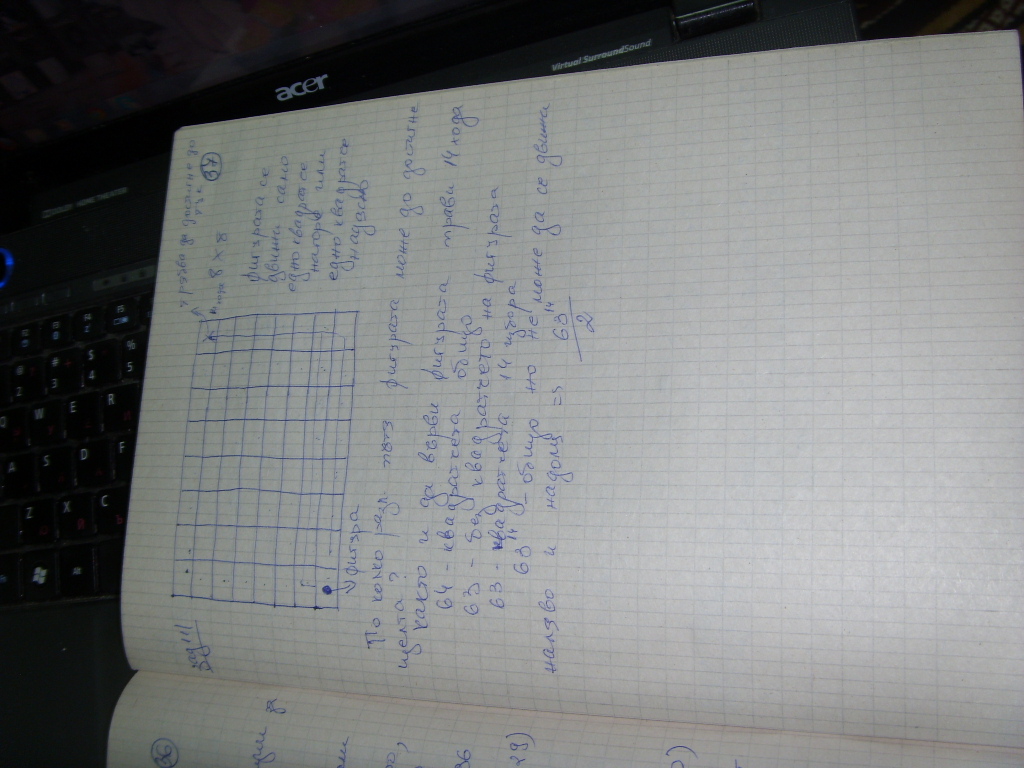 зад 11/
трябва да достигне до
тук
37
8 x 8
фигурата се
движи само
едно квадратче
нагоре или
едно квадратче
надясно
фигура
По колко разл. пътя фигурата може да достигне
целта?
както и да върви фигурата прави 14 хода
64 - квадратчета общо
63 - без квадратчето на фигурата
63 - квадратчета 14 избора
63¹⁴ - общо но не може да се движи
наляво и надолу => 63¹⁴
2
36
acer
Virtual SurroundSound
Q
W
E
R
A
S
D
F
Z
X
C
# 3
$ 4
% 5